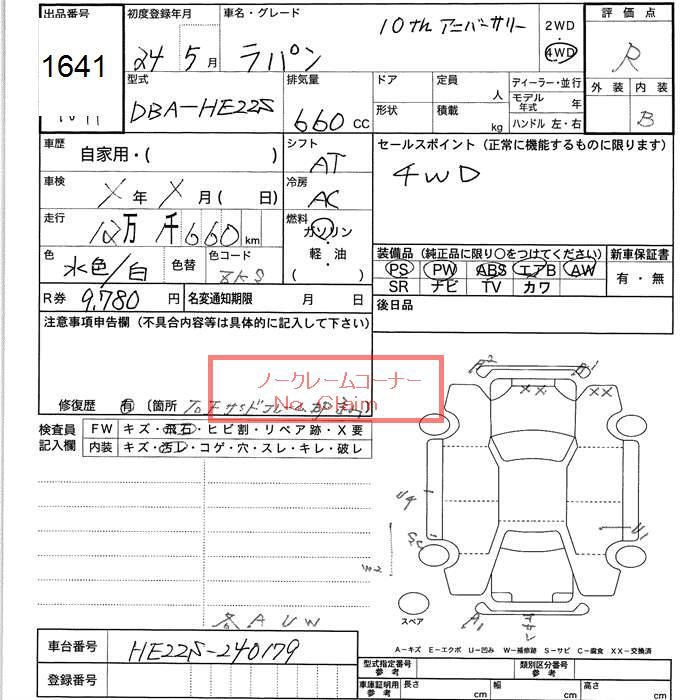 出品番号 初度登録年月 車名・グレード 10th アニバーサリー 2WD・4WD 評価点
1641 24 5月 ラパン R
型式 排気量 ドア 定員 人 ディーラー・並行 外装 内装
DBA-HE22S 660 CC 形状 積載 kg モデル年式 年 B
ハンドル 左・右
車歴 自家用・( ) シフト AT セールスポイント (正常に機能するものに限ります)
車検 X年 X月 ( 日) 冷房 AC 4WD
走行 12万 千660 km 燃料 ガソリン・軽油 ( )
色 水色/白 色替 色コード ZKS 装備品 (純正品に限り○をつけてください) 新車保証書
PS PW ABS エアB AW 有・無
SR ナビ TV カワ
R券 9,780 円 名変通知期限 月 日 後日品
注意事項申告欄 (不具合内容等は具体的に記入して下さい)
ノークレームコーナー
No Claim
修復歴 有 (箇所
検査員記入欄 FW キズ・飛石・ヒビ割・リペア跡・X要
内装 キズ・汚レ・コゲ・穴・スレ・キレ・破レ
A2 B1
XX XX
U4
U1
S2C
A1
スペア
各 A U W
A-キズ E-エクボ U-凹み W-補修跡 S-サビ C-腐食 XX-交換済
車台番号 HE22S-240179
登録番号
型式指定番号 参考 類別区分番号 参考
車庫証明用 参考 長さ cm 幅 cm 高さ cm